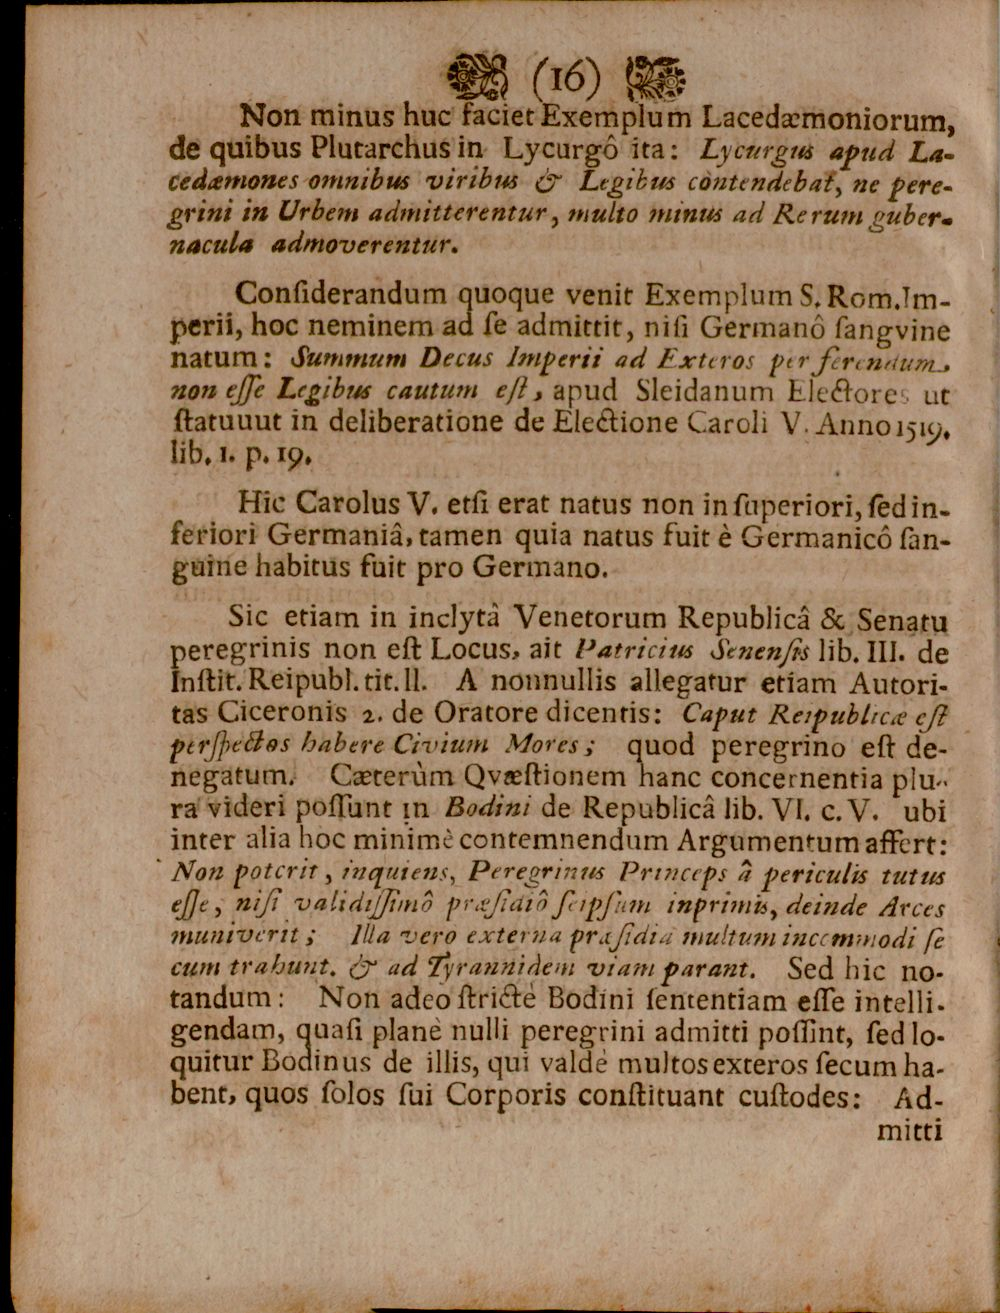 (16)
Non minus huc faciet Exemplum Lacedæmoniorum,
de quibus Plutarchus in Lycurgô ita: Lycurgus apud La-
cedæmones omnibus viribus & Legibus contendebat, ne pere-
grini in Urbem admitterentur, multo minus ad Rerum guber-
nacula admoverentur.
Conſiderandum quoque venit Exemplum S. Rom. Im-
perii, hoc neminem ad ſe admittit, niſi Germanô ſangvine
natum: Summum Decus Imperii ad Exteros perferendum,
non eſſe Legibus cautum eſt, apud Sleidanum Electores ut
ſtatuuut in deliberatione de Electione Caroli V. Anno 1519.
lib. 1. p. 19.
Hic Carolus V. etſi erat natus non in ſuperiori, ſed in-
feriori Germaniâ, tamen quia natus fuit è Germanicô ſan-
guine habitus fuit pro Germano.
Sic etiam in inclytâ Venetorum Republicâ & Senatu
peregrinis non eſt Locus, ait Patricius Senenſis lib. III. de
Inſtit. Reipubl. tit. ll. A nonnullis allegatur etiam Autori-
tas Ciceronis 2. de Oratore dicentis: Caput Reipublicæ eſt
perſpectos habere Civium Mores; quod peregrino eſt de-
negatum. Cæterùm Qvæſtionem hanc concernentia plu-
ra videri poſſunt in Bodini de Republicâ lib. VI. c. V. ubi
inter alia hoc minimè contemnendum Argumentum affert:
Non poterit, inquiens, Peregrinus Princeps â periculis tutus
eſſe, niſi validiſſimô præſidiô ſeipſum inprimis, deinde Arces
muniverit; Illa vero externa præſidia multum incommodi ſe
cum trahunt. & ad Tyrannidem viam parant. Sed hic no-
tandum: Non adeo ſtrictè Bodini ſententiam eſſe intelli-
gendam, quaſi planè nulli peregrini admitti poſſint, ſed lo-
quitur Bodinus de illis, qui valdè multos exteros ſecum ha-
bent, quos ſolos ſui Corporis conſtituant cuſtodes: Ad-
mitti